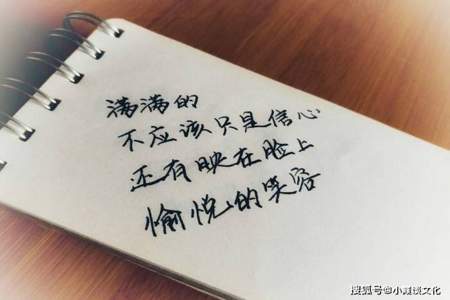 满满的
不应该只是信心
还有映在脸上
愉悦的笑容
搜狐号@小城谈文化